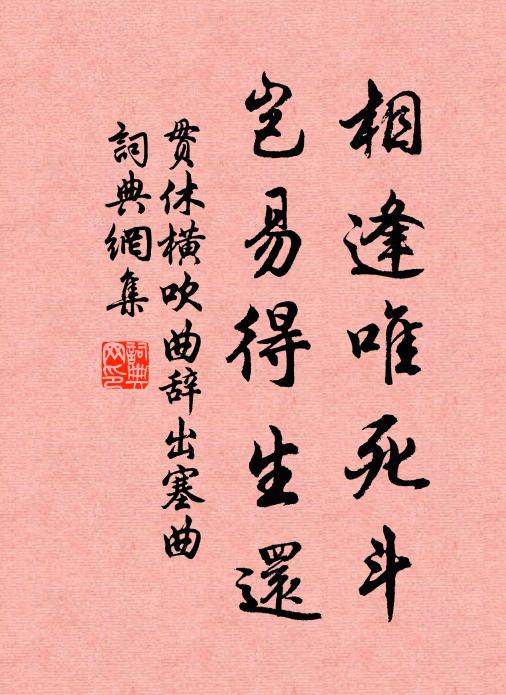 相逢唯死斗
岂易得生還
贯休横吹曲辞出塞曲
詞典網集
詞典网印